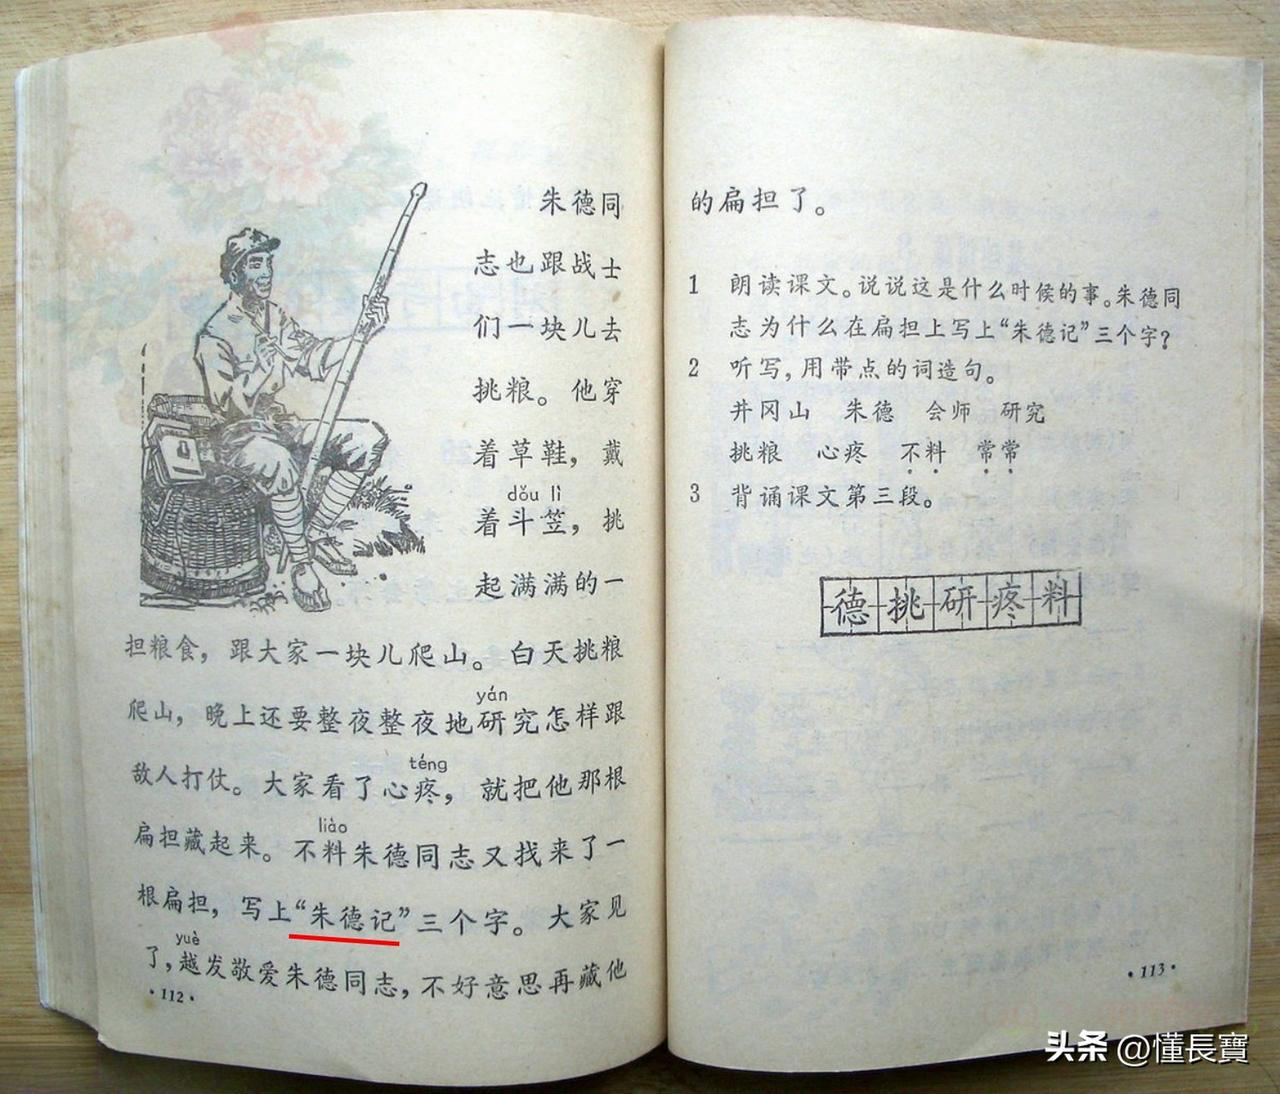 朱德同
志也跟战士
们一块儿去
挑粮。他穿
着草鞋，戴
dǒu lì
着斗笠，挑
起满满的一
担粮食，跟大家一块儿爬山。白天挑粮
yán
爬山，晚上还要整夜整夜地研究怎样跟
téng
敌人打仗。大家看了心疼，就把他那根
liào
扁担藏起来。不料朱德同志又找来了一
根扁担，写上“朱德记”三个字。大家见
yuè
了，越发敬爱朱德同志，不好意思再藏他
·112·
的扁担了。
1 朗读课文。说说这是什么时候的事。朱德同
志为什么在扁担上写上“朱德记”三个字？
2 听写，用带点的词造句。
井冈山 朱德 会师 研究
挑粮 心疼 不料 常常
3 背诵课文第三段。
德挑研疼料
·113·
头条 @懂長寶